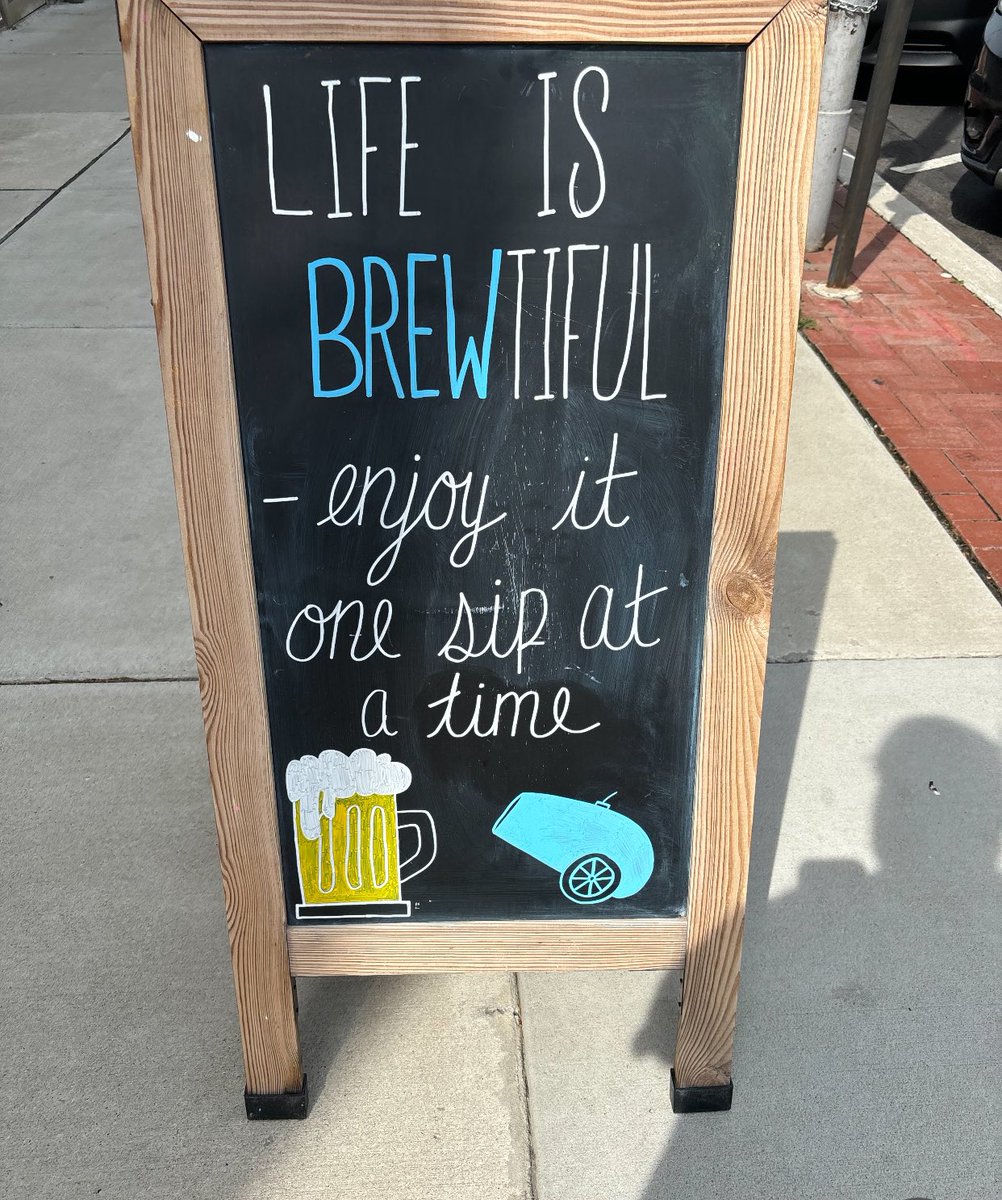 LIFE IS
BREWTIFUL
- enjoy it
one sip at
a time